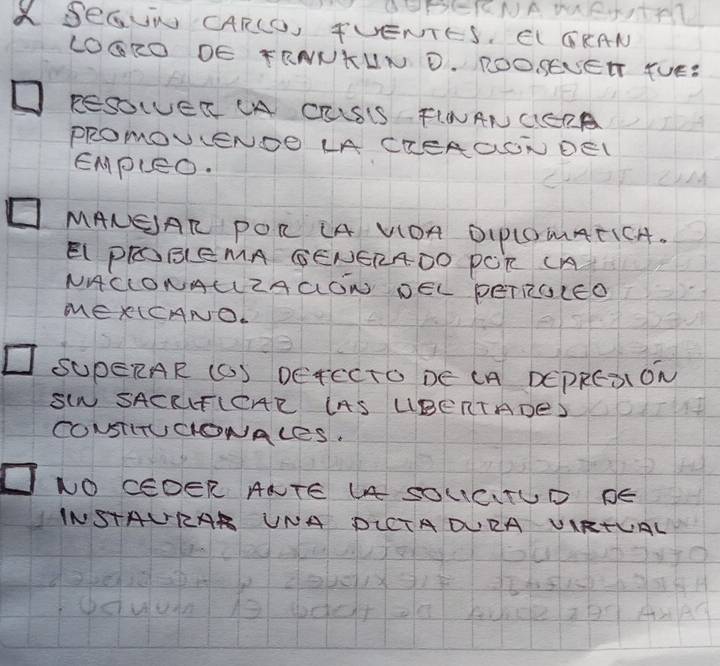 2 SEGÚN CARLOS FUENTES. El GRAN
LOGRO DE FRANKLIN D. ROOSEVELT FUE:
RESOLVER LA CRISIS FINANCIERA
PROMOVIENDO LA CREACIÓN DEl
EMPLEO.
MANEJAR POR LA VIDA DIPLOMATICA.
El PROBLEMA GENERADO POR LA
NACIONALIZACIÓN DEL PETROLEO
MEXICANO.
SUPERAR LOS DEFECTO DE LA DEPRESIÓN
SIN SACRIFICAR LAS LIBERTADES
CONSTITUCIONALES.
NO CEDER ANTE LA SOLICITUD DE
INSTAURAR UNA DICTADURA VIRTUAL